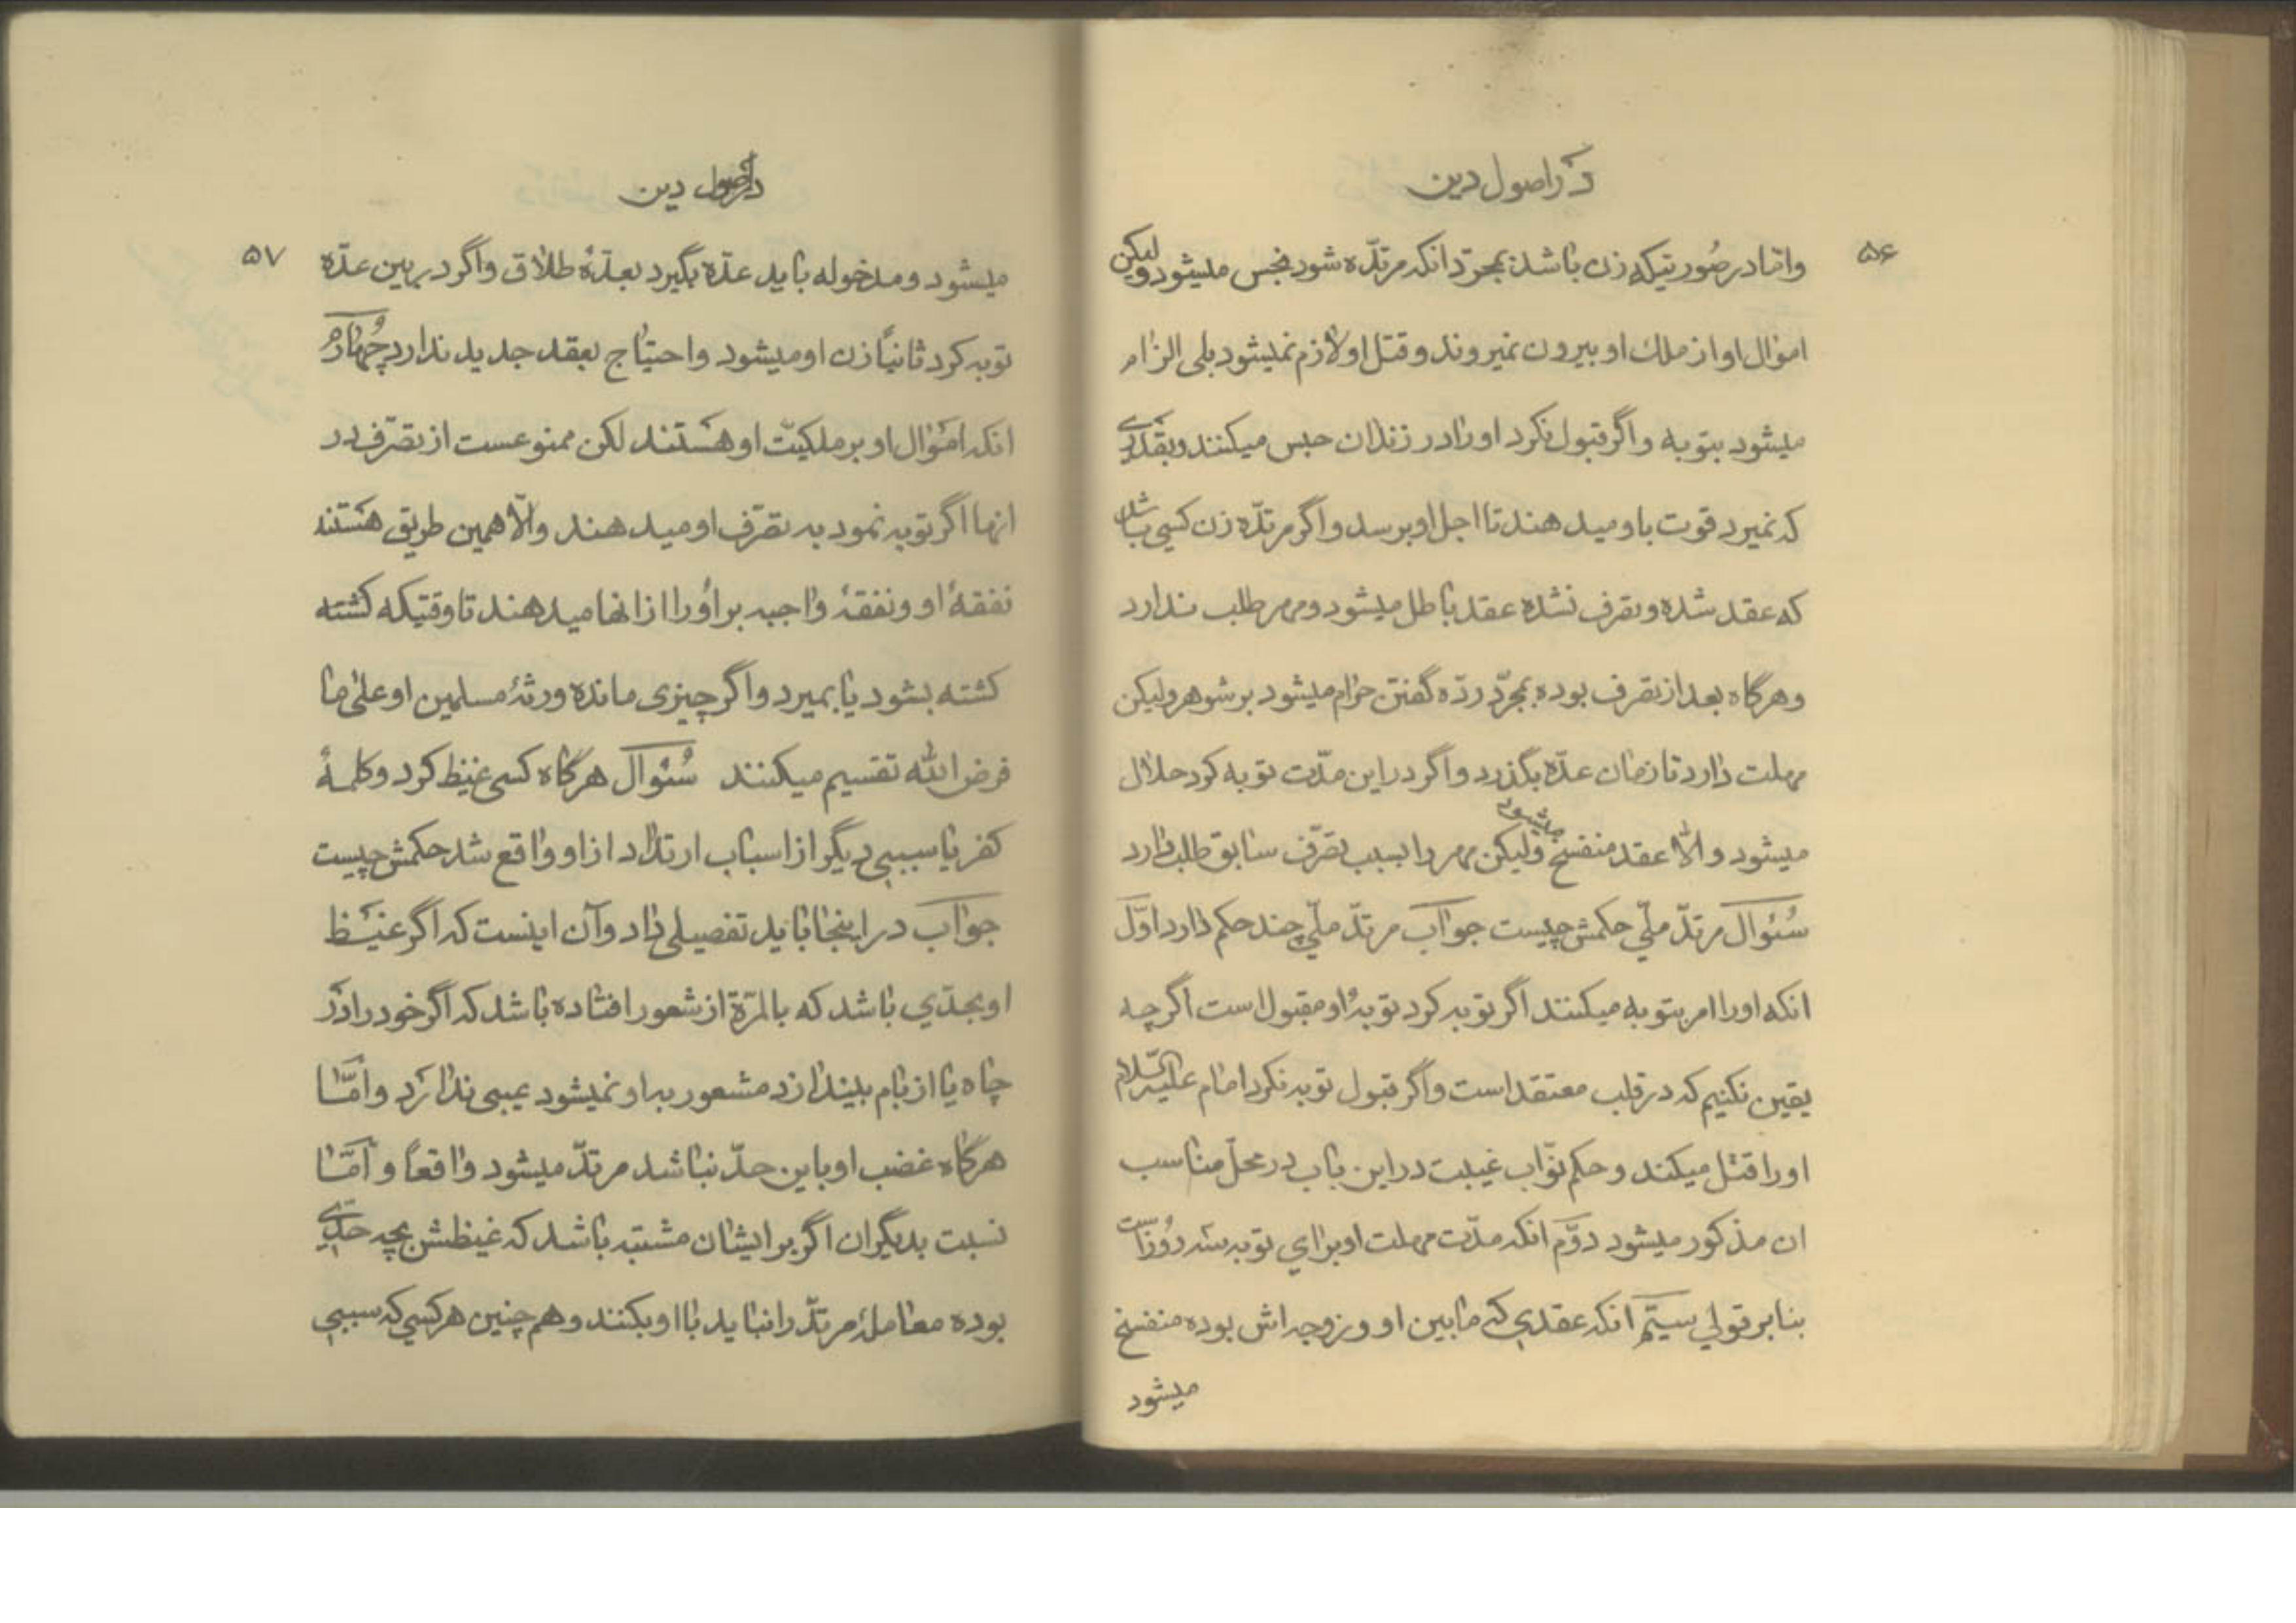 در اصول دین
۵۶
واما در صورتیکه زن باشد بمجرد انکه مرتدّه شود نجس میشود ولیکن
اموال او از ملک او بیرون نمیروند و قتل او لازم نمیشود بلی الزام
میشود بتوبه و اگر قبول نکرد او را در زندان حبس میکنند و بقدری
که نمیرد قوت باو میدهند تا اجل او برسد و اگر مرتدّه زن کسی باشد
که عقد شده و تصرف نشده عقد باطل میشود و مهر طلب ندارد
و هرگاه بعد از تصرف بوده بمجرّد ردّه گفتن حرام میشود بر شوهر ولیکن
مهلت دارد تا زمان عدّه بگذرد و اگر در این مدّت توبه کرد حلال
میشود و الّا عقد منفسخ میشود ولیکن مهر را بسبب تصرّف سابق طلب دارد
سُئوال مرتدّ ملّی حکمش چیست جواب مرتدّ ملّی چند حکم دارد اوّل
انکه او را امر بتوبه میکنند اگر توبه کرد توبهٔ او مقبول است اگرچه
یقین نکنیم که در قلب معتقد است و اگر قبول توبه نکرد امام علیه السّلام
او را قتل میکند و حکم نوّاب غیبت در این باب در محلّ مناسب
ان مذکور میشود دوّم انکه مدّت مهلت او برای توبه سه روز است
بنا بر قولی سیّم انکه عقدی که مابین او و زوجه اش بوده منفسخ
میشود
در اصول دین
۵۷
میشود و مدخوله باید عدّه بگیرد بعدّهٔ طلاق و اگر در بین عدّه
توبه کرد ثانیاً زن او میشود و احتیاج بعقد جدید ندارد چُهارُم
انکه اموال او بر ملکیّت او هستند لکن ممنوعست از تصرّف در
انها اگر توبه نمود به تصرّف او میدهند والّا همین طریق هستند
نفقهٔ او و نفقهٔ واجبه بر اُو را از انها میدهند تا وقتیکه کشته
کشته بشود یا بمیرد و اگر چیزی مانده ورثهٔ مسلمین او علی ما
فرض الله تقسیم میکنند سُئوال هرگاه کسی غیظ کرد و کلمهٔ
کفر یا سببی دیگر از اسباب ارتداد از او واقع شد حکمش چیست
جواب در اینجا باید تفصیلی داد وآن اینست که اگر غیظ
او بحدّی باشد که بالمرّة از شعور افتاده باشد که اگر خود را در
چاه یا از بام بیندازد مشعور به او نمیشود عیبی ندارد و امّا
هرگاه غضب او باین حدّ نباشد مرتدّ میشود واقعاً و امّا
نسبت بدیگران اگر بر ایشان مشتبه باشد که غیظش بچه حدّی
بوده معاملهٔ مرتدّ را نباید با او بکنند و هم چنین هر کسی که سببی